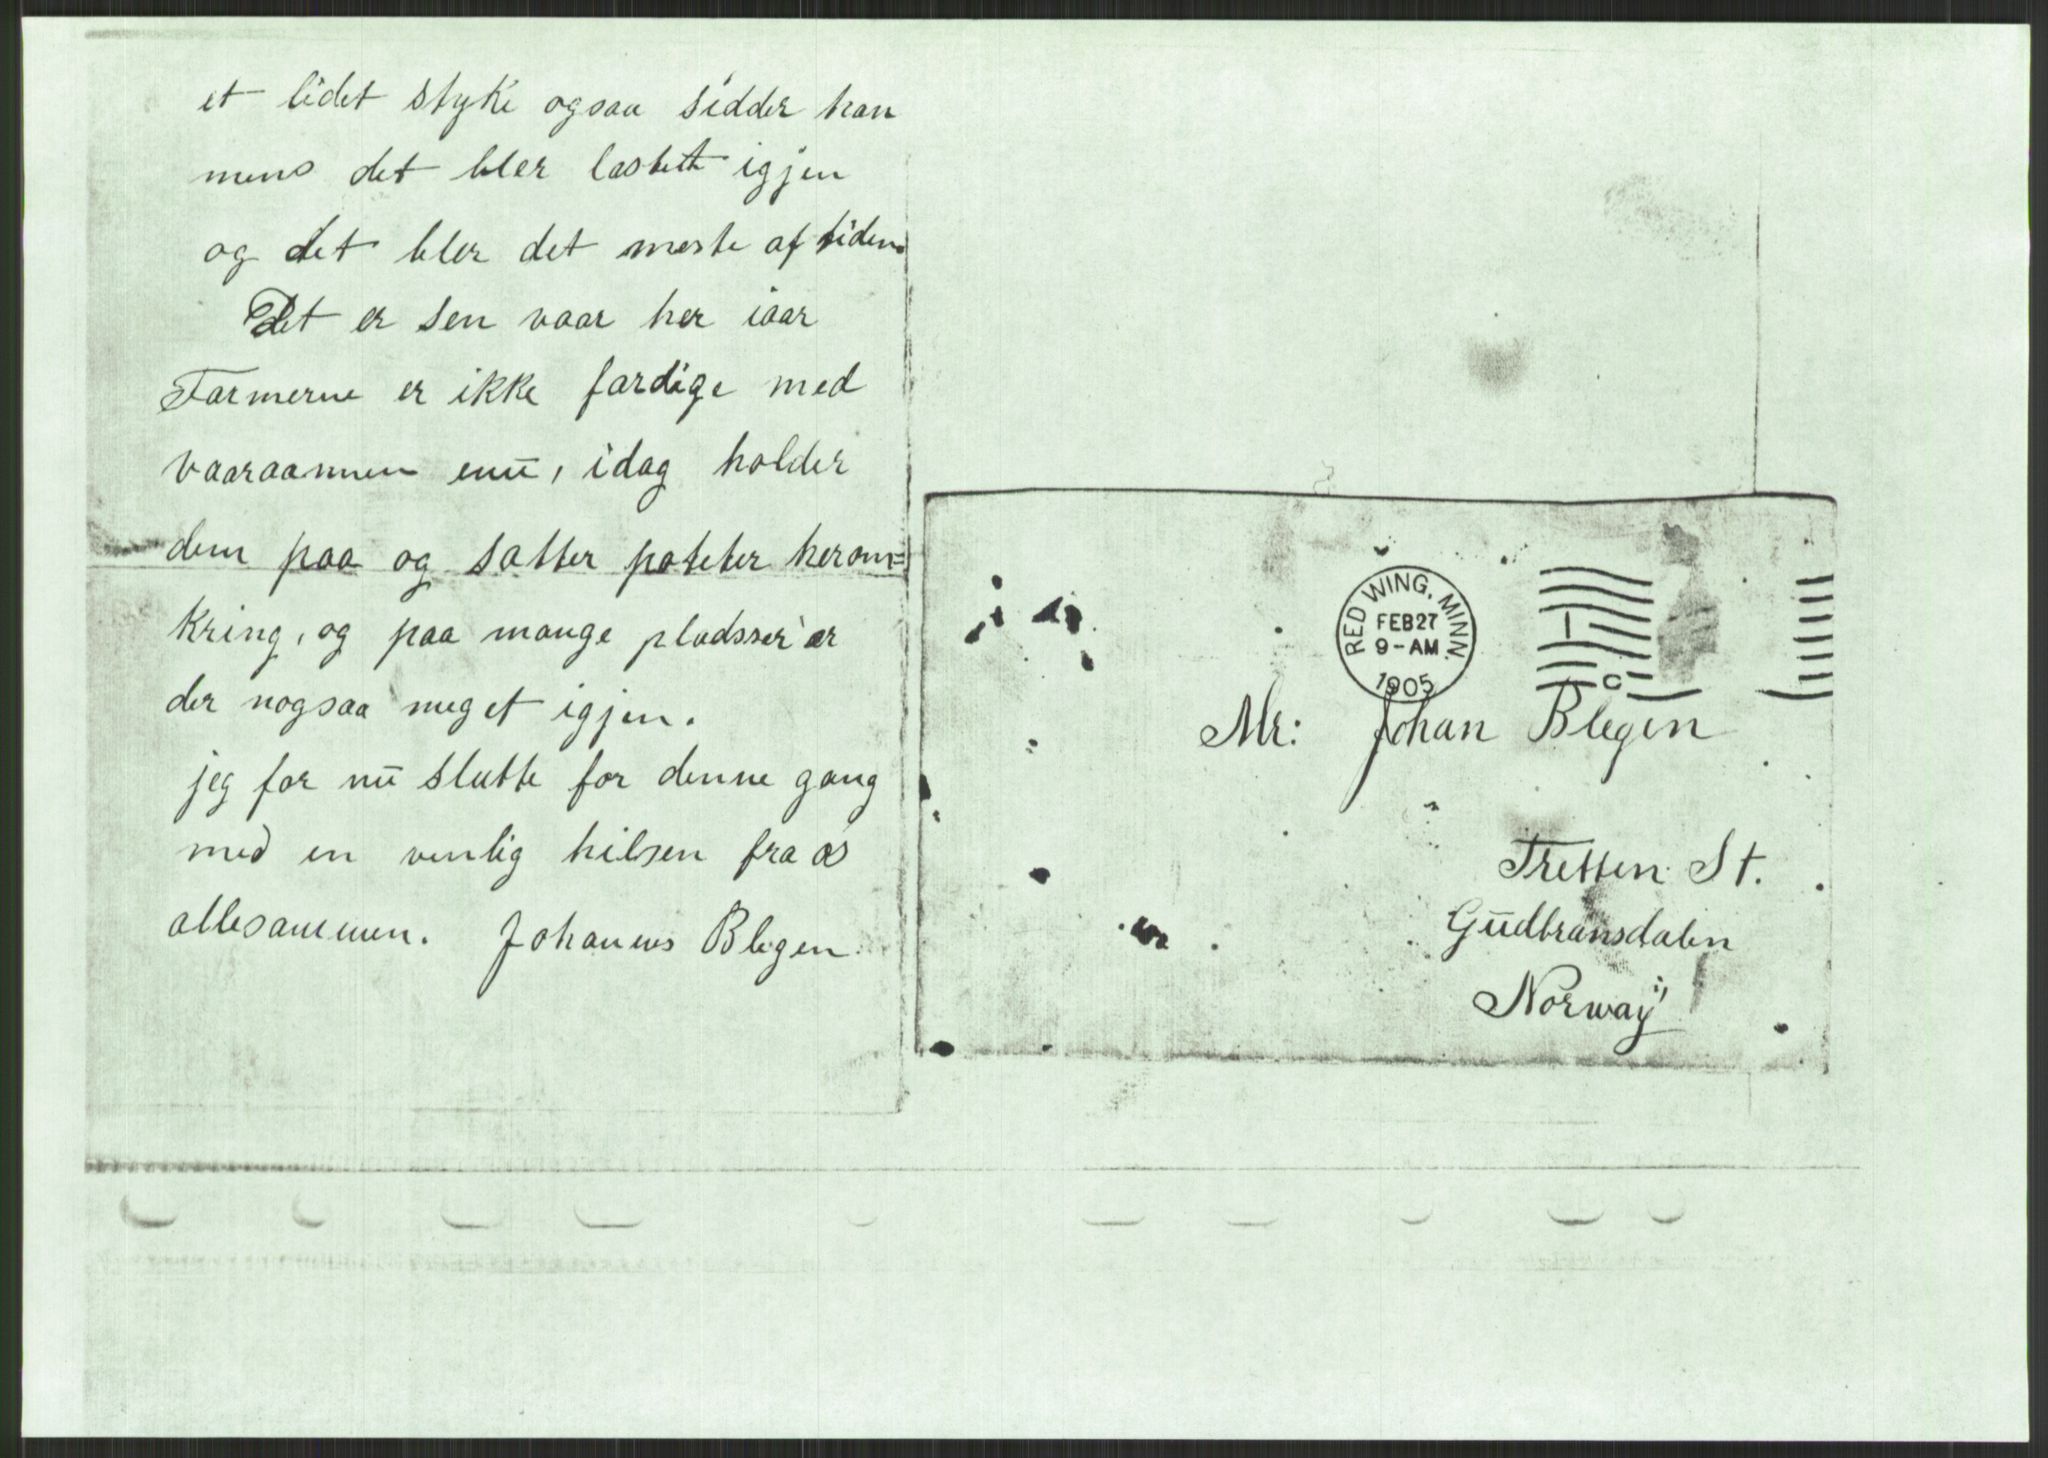 et lidet styke ogsaa sidder han
mens det bler lastett igjen
og det bler det meste af tiden.
Det er sen vaar her iaar
Farmerne er ikke fardige med
vaaraannen enū, idag holder
dem paa og satter poteter herom=
kring, og paa mange pladsser er
der nogsaa meget igjen.
jeg far nū slutte for denne gang
med en venlig hilsen fra os
allesammen. Johannes Blegen.
RED WING, MINN.
FEB 27
9-AM
1905
Mr: Johan Blegen
Tretten St.
Gūdbransdalen
Norway